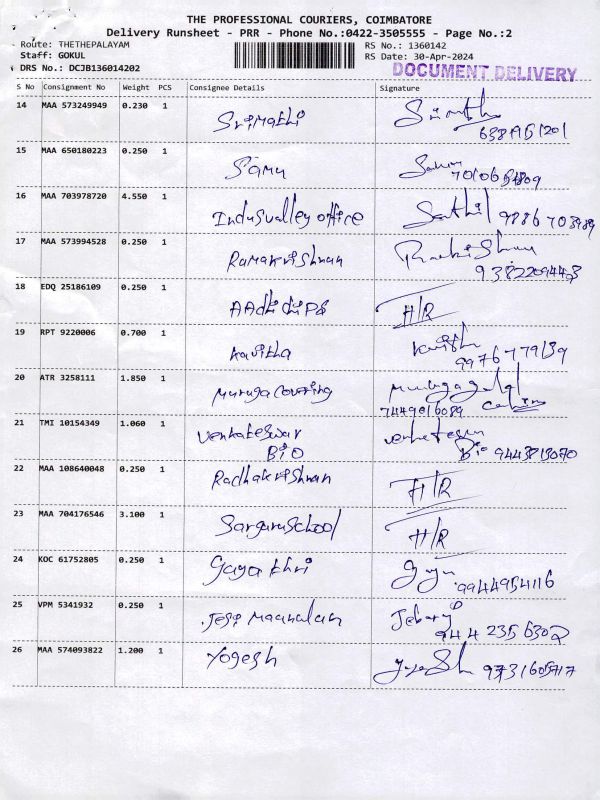 THE PROFESSIONAL COURIERS, COIMBATORE
Delivery Runsheet - PRR - Phone No.:0422-3505555 - Page No.:2
Route: THETHEPALAYAM RS No.: 1360142
Staff: GOKUL RS Date: 30-Apr-2024
DRS No.: DCJB136014202 DOCUMENT DELIVERY
S No Consignment No Weight PCS Consignee Details Signature
14 MAA 573249949 0.230 1 Srimathi
15 MAA 650180223 0.250 1 Samu
16 MAA 703978720 4.550 1 Indusvalley office Senthil 9886703989
17 MAA 573994528 0.250 1 Ramakrishnan
9382209443
18 EDQ 25186109 0.250 1 AAdhi chips H/R
19 RPT 9220006 0.700 1 Kavitha
9976779139
20 ATR 3258111 1.850 1 Muruga covering
7449016089
21 TMI 10154349 1.060 1 Venkateswar
BIO Bio 9443813070
22 MAA 108640048 0.250 1 Radhakrishnan H/R
23 MAA 704176546 3.100 1 Sarguru School H/R
24 KOC 61752805 0.250 1 Gayathri 9944954116
25 VPM 5341932 0.250 1
944 235 6302
26 MAA 574093822 1.200 1 Yogesh 9731605717